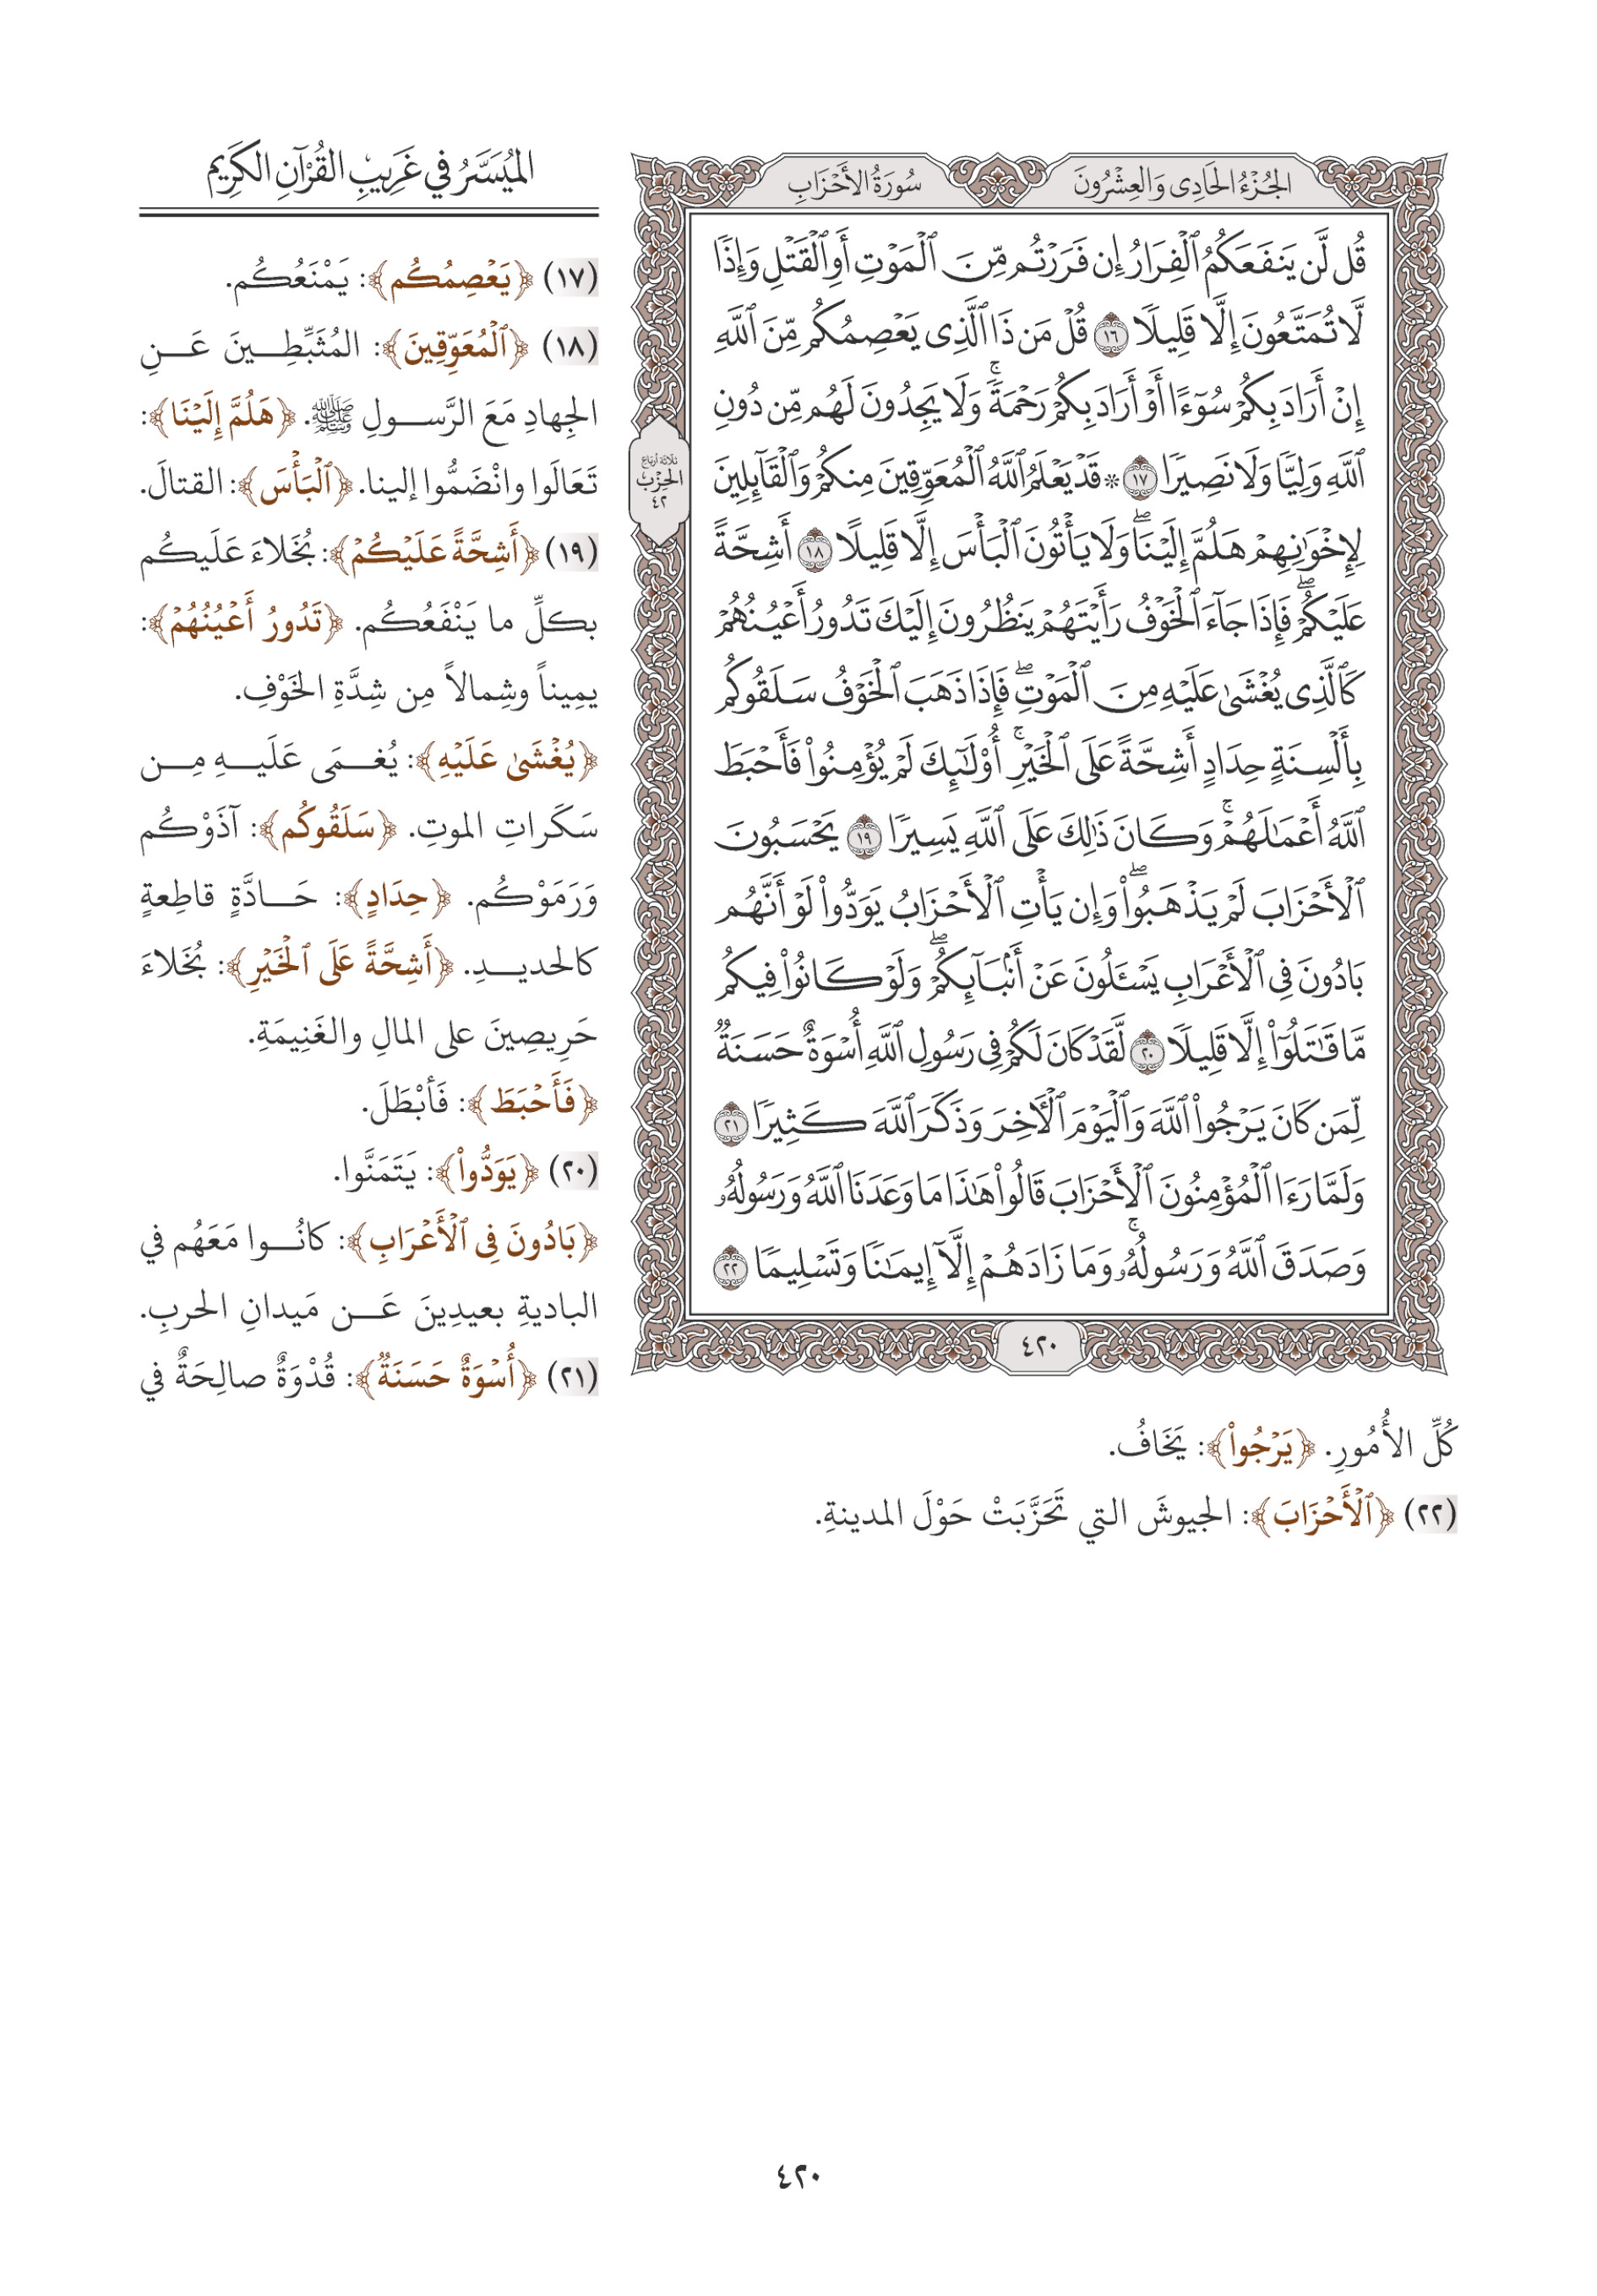 الجُزْءُ الحَادِى وَالعِشْرُونَ
سُورَةُ الأَحْزَابِ
قُل لَّن يَنفَعَكُمُ ٱلْفِرَارُ إِن فَرَرْتُم مِّنَ ٱلْمَوْتِ أَوِ ٱلْقَتْلِ وَإِذًا
لَّا تُمَتَّعُونَ إِلَّا قَلِيلًا ١٦ قُلْ مَن ذَا ٱلَّذِى يَعْصِمُكُم مِّنَ ٱللَّهِ
إِنْ أَرَادَ بِكُمْ سُوٓءًا أَوْ أَرَادَ بِكُمْ رَحْمَةً ۚ وَلَا يَجِدُونَ لَهُم مِّن دُونِ
ٱللَّهِ وَلِيًّا وَلَا نَصِيرًا ١٧ * قَدْ يَعْلَمُ ٱللَّهُ ٱلْمُعَوِّقِينَ مِنكُمْ وَٱلْقَآئِلِينَ
لِإِخْوَٰنِهِمْ هَلُمَّ إِلَيْنَا ۖ وَلَا يَأْتُونَ ٱلْبَأْسَ إِلَّا قَلِيلًا ١٨ أَشِحَّةً
عَلَيْكُمْ ۖ فَإِذَا جَآءَ ٱلْخَوْفُ رَأَيْتَهُمْ يَنظُرُونَ إِلَيْكَ تَدُورُ أَعْيُنُهُمْ
كَٱلَّذِى يُغْشَىٰ عَلَيْهِ مِنَ ٱلْمَوْتِ ۖ فَإِذَا ذَهَبَ ٱلْخَوْفُ سَلَقُوكُم
بِأَلْسِنَةٍ حِدَادٍ أَشِحَّةً عَلَى ٱلْخَيْرِ ۚ أُو۟لَٰٓئِكَ لَمْ يُؤْمِنُوا۟ فَأَحْبَطَ
ٱللَّهُ أَعْمَٰلَهُمْ ۚ وَكَانَ ذَٰلِكَ عَلَى ٱللَّهِ يَسِيرًا ١٩ يَحْسَبُونَ
ٱلْأَحْزَابَ لَمْ يَذْهَبُوا۟ ۖ وَإِن يَأْتِ ٱلْأَحْزَابُ يَوَدُّوا۟ لَوْ أَنَّهُم
بَادُونَ فِى ٱلْأَعْرَابِ يَسْـَٔلُونَ عَنْ أَنۢبَآئِكُمْ ۖ وَلَوْ كَانُوا۟ فِيكُم
مَّا قَٰتَلُوٓا۟ إِلَّا قَلِيلًا ٢٠ لَّقَدْ كَانَ لَكُمْ فِى رَسُولِ ٱللَّهِ أُسْوَةٌ حَسَنَةٌ
لِّمَن كَانَ يَرْجُوا۟ ٱللَّهَ وَٱلْيَوْمَ ٱلْـَٔاخِرَ وَذَكَرَ ٱللَّهَ كَثِيرًا ٢١
وَلَمَّا رَءَا ٱلْمُؤْمِنُونَ ٱلْأَحْزَابَ قَالُوا۟ هَٰذَا مَا وَعَدَنَا ٱللَّهُ وَرَسُولُهُۥ
وَصَدَقَ ٱللَّهُ وَرَسُولُهُۥ ۚ وَمَا زَادَهُمْ إِلَّآ إِيمَٰنًا وَتَسْلِيمًا ٢٢
٤٢٠
ثلاثة أرباع
الحِزْب
٤٢
الميُسَّرُ في غَرِيبِ القُرْآنِ الكَرِيم
(١٧) ﴿يَعْصِمُكُم﴾: يَمْنَعُكُم.
(١٨) ﴿ٱلْمُعَوِّقِينَ﴾: المُثَبِّطِـــينَ عَـــنِ
الجِهادِ مَعَ الرَّســـولِ ﷺ. ﴿هَلُمَّ إِلَيْنَا﴾:
تَعَالَوا وانْضَمُّوا إلينا. ﴿ٱلْبَأْسَ﴾: القتالَ.
(١٩) ﴿أَشِحَّةً عَلَيْكُمْ﴾: بُخَلاءَ عَلَيكُم
بكلِّ ما يَنْفَعُكُم. ﴿تَدُورُ أَعْيُنُهُمْ﴾:
يمِيناً وشِمالاً مِن شِدَّةِ الخَوْفِ.
﴿يُغْشَىٰ عَلَيْهِ﴾: يُغـــمَى عَلَيـــهِ مِـــن
سَكَراتِ الموتِ. ﴿سَلَقُوكُم﴾: آذَوْكُم
وَرَمَوْكُم. ﴿حِدَادٍ﴾: حَـــادَّةٍ قاطِعةٍ
كالحديـــدِ. ﴿أَشِحَّةً عَلَى ٱلْخَيْرِ﴾: بُخَلاءَ
حَرِيصِينَ على المالِ والغَنِيمَةِ.
﴿فَأَحْبَطَ﴾: فَأبْطَلَ.
(٢٠) ﴿يَوَدُّوا۟﴾: يَتَمَنَّوا.
﴿بَادُونَ فِى ٱلْأَعْرَابِ﴾: كانُـــوا مَعَهُم في
الباديةِ بعيدِينَ عَـــن مَيدانِ الحربِ.
(٢١) ﴿أُسْوَةٌ حَسَنَةٌ﴾: قُدْوَةٌ صالِحَةٌ في
كُلِّ الأُمُورِ. ﴿يَرْجُوا۟﴾: يَخَافُ.
(٢٢) ﴿ٱلْأَحْزَابَ﴾: الجيوشَ التي تَحَزَّبَتْ حَوْلَ المدينةِ.
٤٢٠